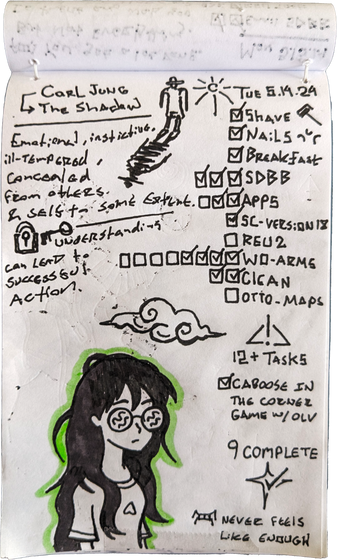 Carl Jung
The Shadow
Emotional, instictive,
ill-tempered,
concealed
from others.
& self to some extent.
understanding
can lead to
successful
action.
Tue 5.14.24
Shave
Nails
Breakfast
SDBB
Apps
SC-Version 18
WO-Arms
Clean
Otto_Maps
12+ Tasks
Caboose in
the corner
game w/ Olv
9 Complete
Never feels
like enough